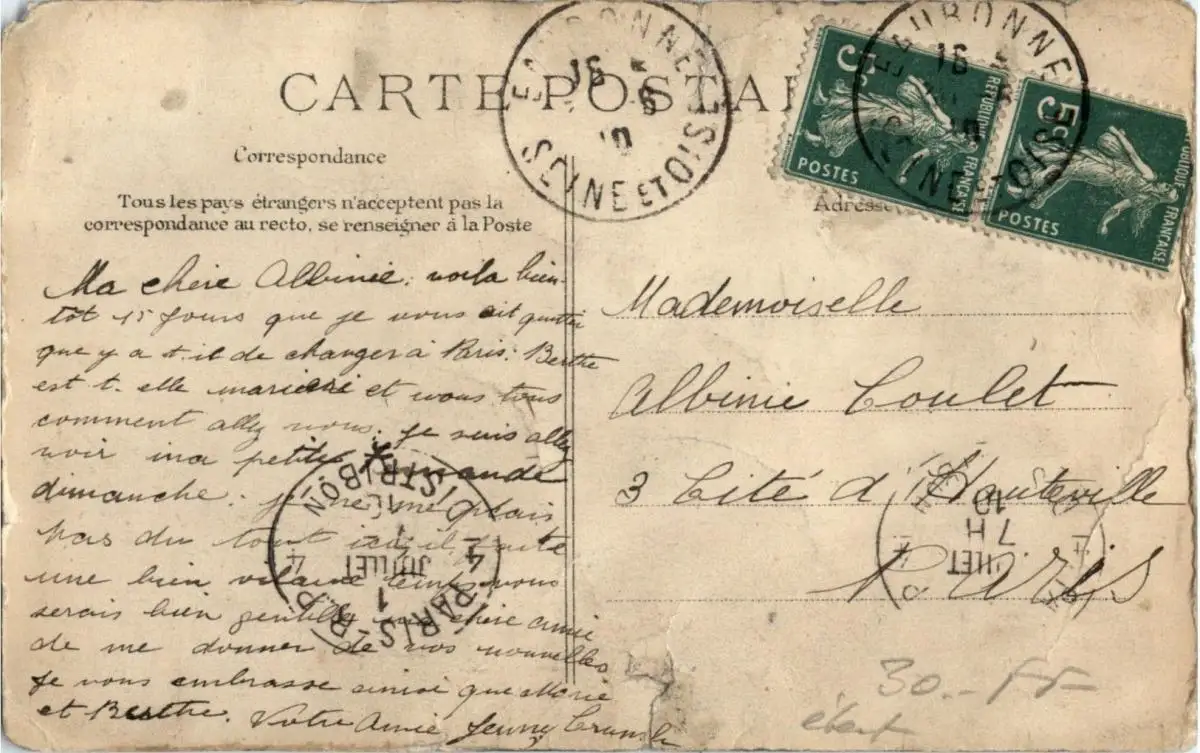 CARTE POSTA
Correspondance
Tous les pays étrangers n'acceptent pas la
correspondance au recto, se renseigner à la Poste
Adresse
EAUBONNE
16
10
SEINE ET OISE
EAUBONNE
16
10
SEINE ET OISE
5c
POSTES
REPUBLIQUE FRANÇAISE
5c
POSTES
REPUBLIQUE FRANÇAISE
Ma chère Albinie, voila bien-
tot 15 jours que je vous ait quitter
que y a t. il de changer à Paris. Berthe
est t. elle et vous tous
comment allez vous. je suis allez
voir ma petite Armande
dimanche. je ne me plais
pas du tout ici, il faite
une bien vilaine temps vous
serais bien gentille ma chère amie
de me donner de vos nouvelles.
Je vous embrasse ainsi que Marie
et Berthe. Votre Amie Jeuny
Mademoiselle
Albinie Coulet
3 Cité d'Hauteville
Paris
DISTRIBON
4
1
JUILLET
4
PARIS
7H
10
ILLET
30.- FF